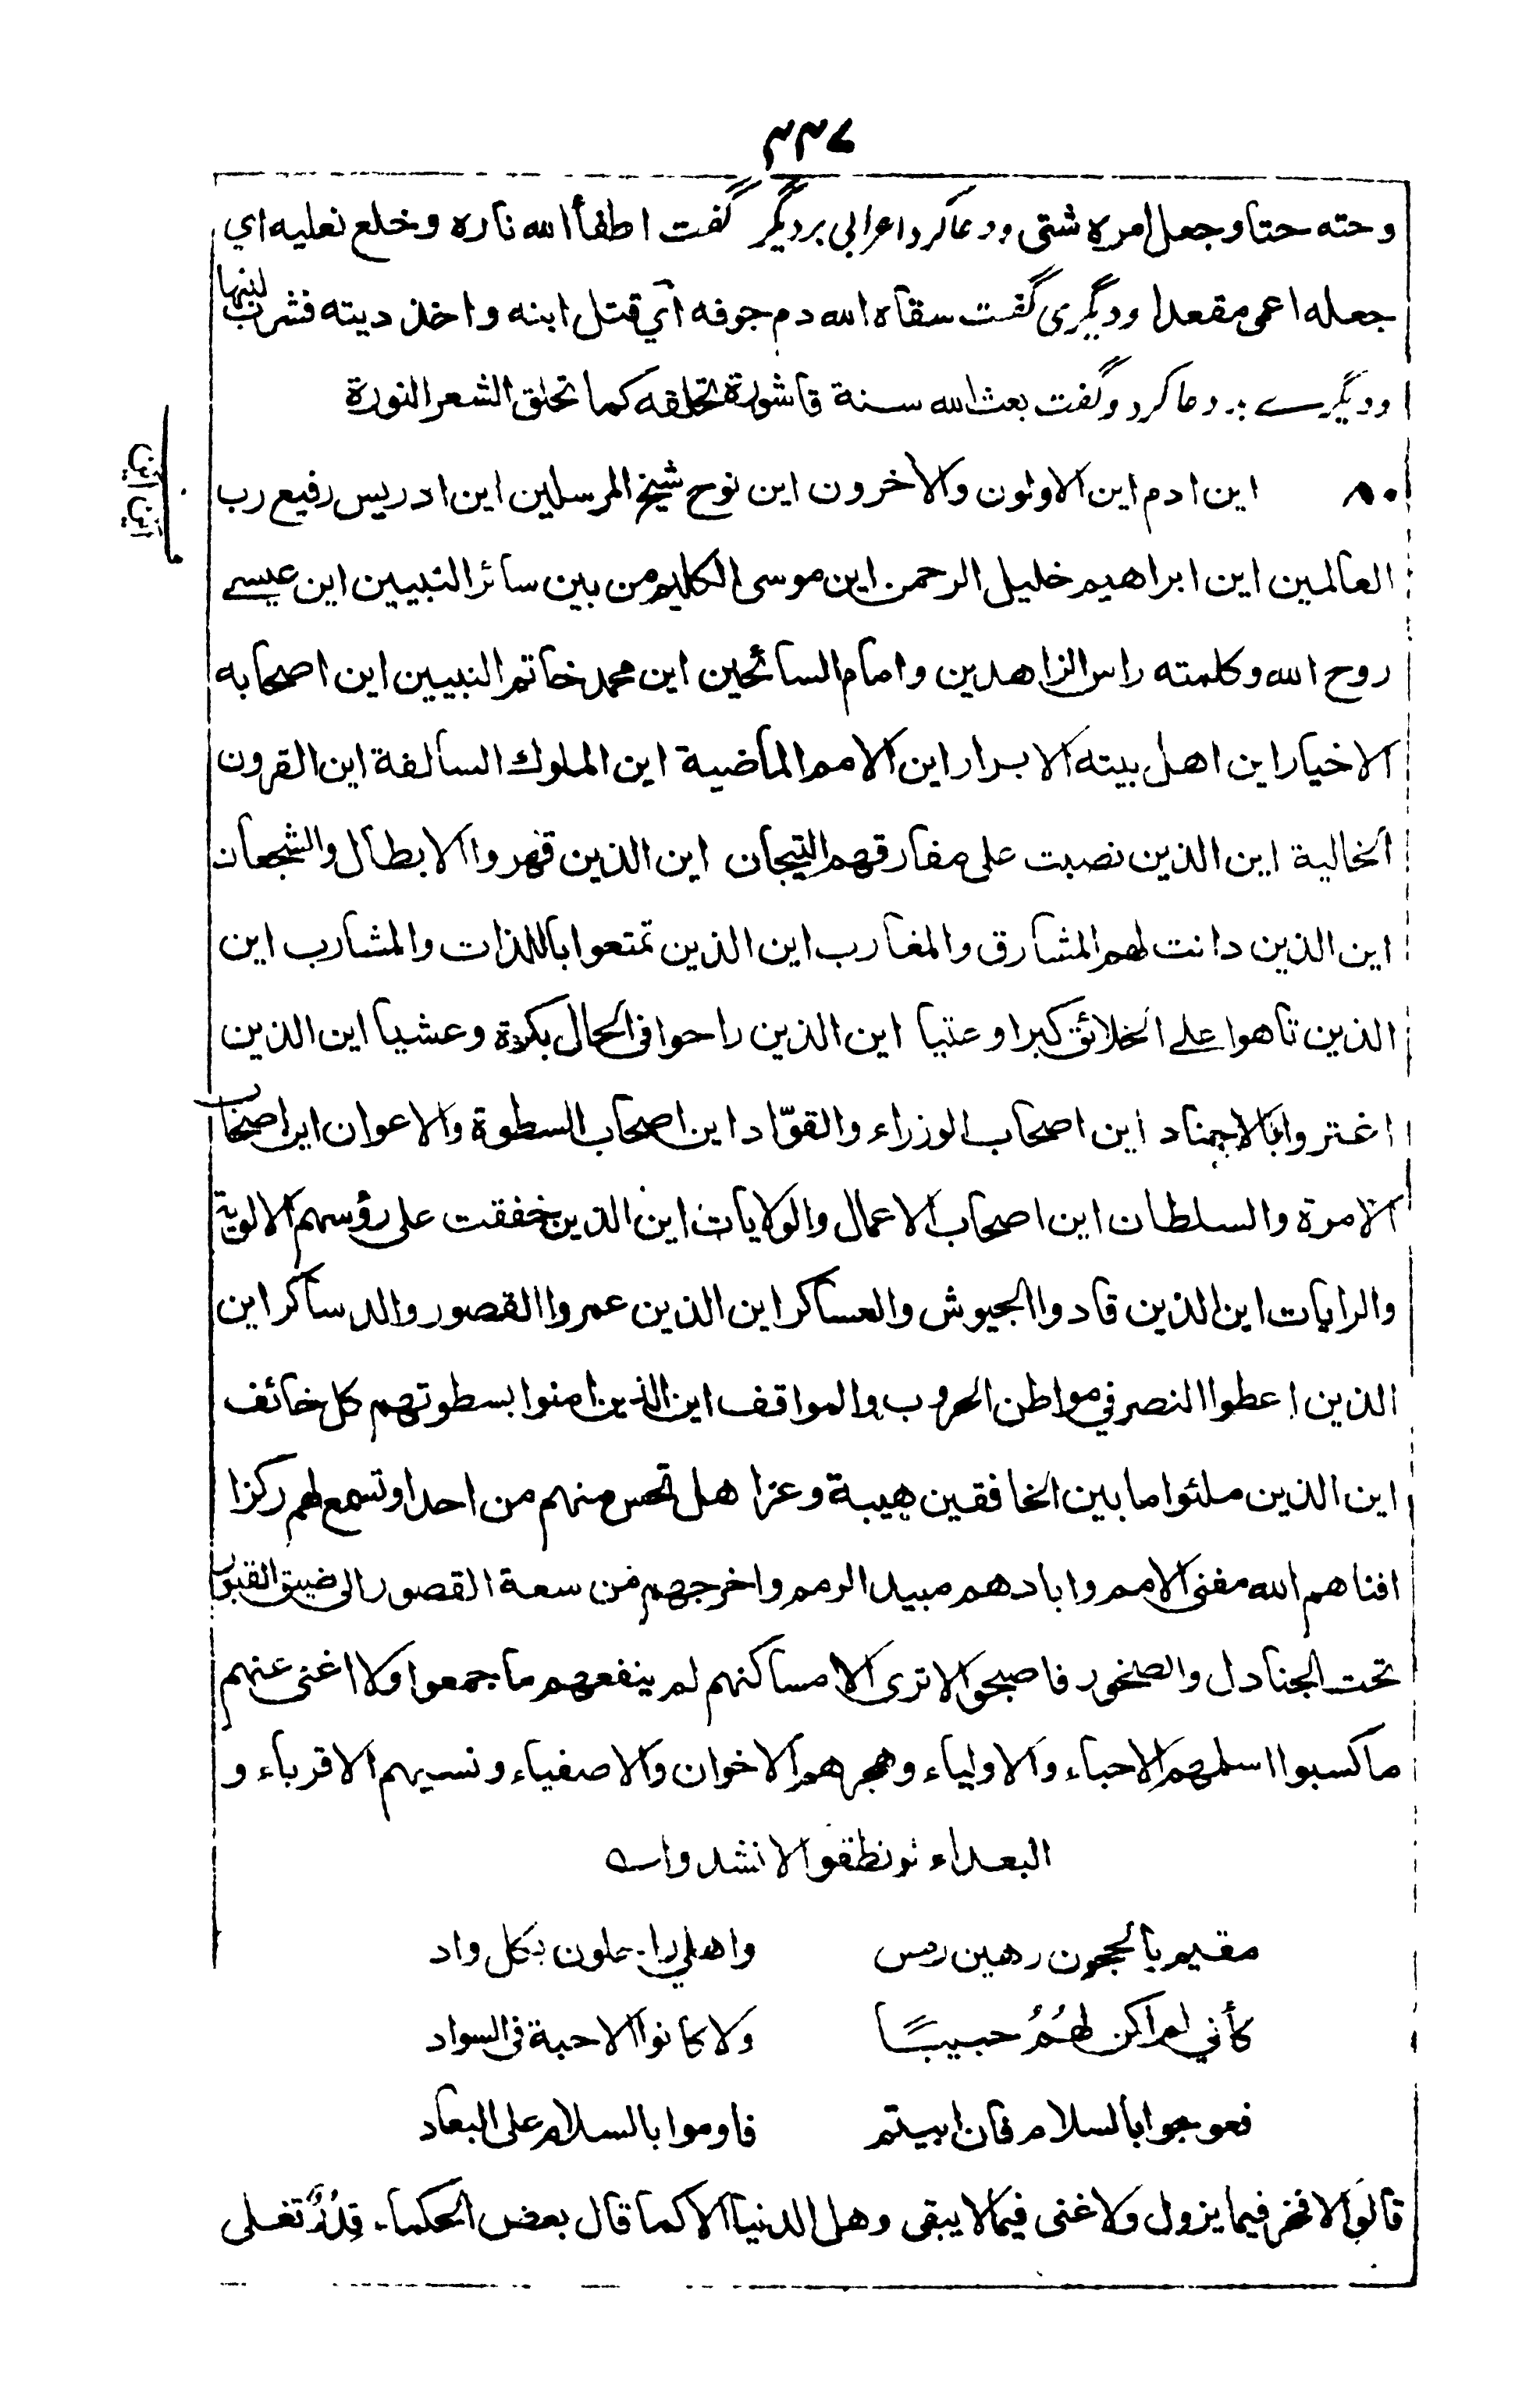 ٣٣٧
وحته حتا وجعل امره شتى ودعا کرد اعرابی بر دیگر گفت اطفأ الله ناره وخلع نعلیه ای
جعله اعمی مقعدا ودیگری گفت سقاه الله دم جوفه ای قتل ابنه واخذ دیته فشرب لبنها
ودیگرے بر دعا کرد وگفت بعث الله سنة قاشورة تحلقه کما تحلق الشعر النورة
این این
٨٠ این ادم این الاولون والاخرون این نوح شیخ المرسلین این ادریس رفیع رب
العالمین این ابراهیم خلیل الرحمن این موسی الکلیم من بین سائر النبیین این عیسے
روح الله وکلمته راس الزاهدین وامام السائحین این محمد خاتم النبیین این اصحابه
الاخیار این اهل بیته الابرار این الامم الماضیة این الملوك السالفة این القرون
الخالیة این الذین نصبت علی مفارقهم التیجان این الذین قهروا الابطال والشجعان
این الذین دانت لهم المشارق والمغارب این الذین تمتعوا باللذات والمشارب این
الذین تاهوا علے الخلائق کبرا وعتیا این الذین راحوا فی الحال بکرة وعشیا این الذین
اغتروا بالاجناد این اصحاب الوزراء والقوّاد این اصحاب السطوة والاعوان این اصحاب
الامرة والسلطان این اصحاب الاعمال والولایات این الذین خفقت علی رؤسهم الالویة
والرایات این الذین قادوا الجیوش والعساکر این الذین عمروا القصور والدساکر این
الذین اعطوا النصر فی مواطن الحروب والمواقف این الذین امنوا بسطوتهم کل خائف
این الذین ملئوا ما بین الخافقین هیبة وعزا هل تحس منهم من احد او تسمع لهم رکزا
افناهم الله مفنی الامم وابادهم مبید الرمم واخرجهم من سعة القصور الی ضیق القبور
تحت الجنادل والصخور فاصبحوا لا تری الا مساکنهم لم ینفعهم ما جمعوا ولا اغنی عنهم
ما کسبوا اسلمهم الاحباء والاولیاء وهجرهم الاخوان والاصفیاء ونسیهم الاقرباء و
البعداء لو نطقوا لانشدوا ــه
مقیم بالحجون رهین رمس واهلی راحلون بکل واد
کأني لم اکن لهُمُ حبیبًا ولا کانوا الاحبة فی السواد
فعوجوا بالسلام فان ابیتم فاوموا بالسلام علی البعاد
قالوا لا فخر فیما یزول ولا غنی فیما لا یبقی وهل الدنیا الا کما قال بعض الحکماء قِدْرٌ تغلی